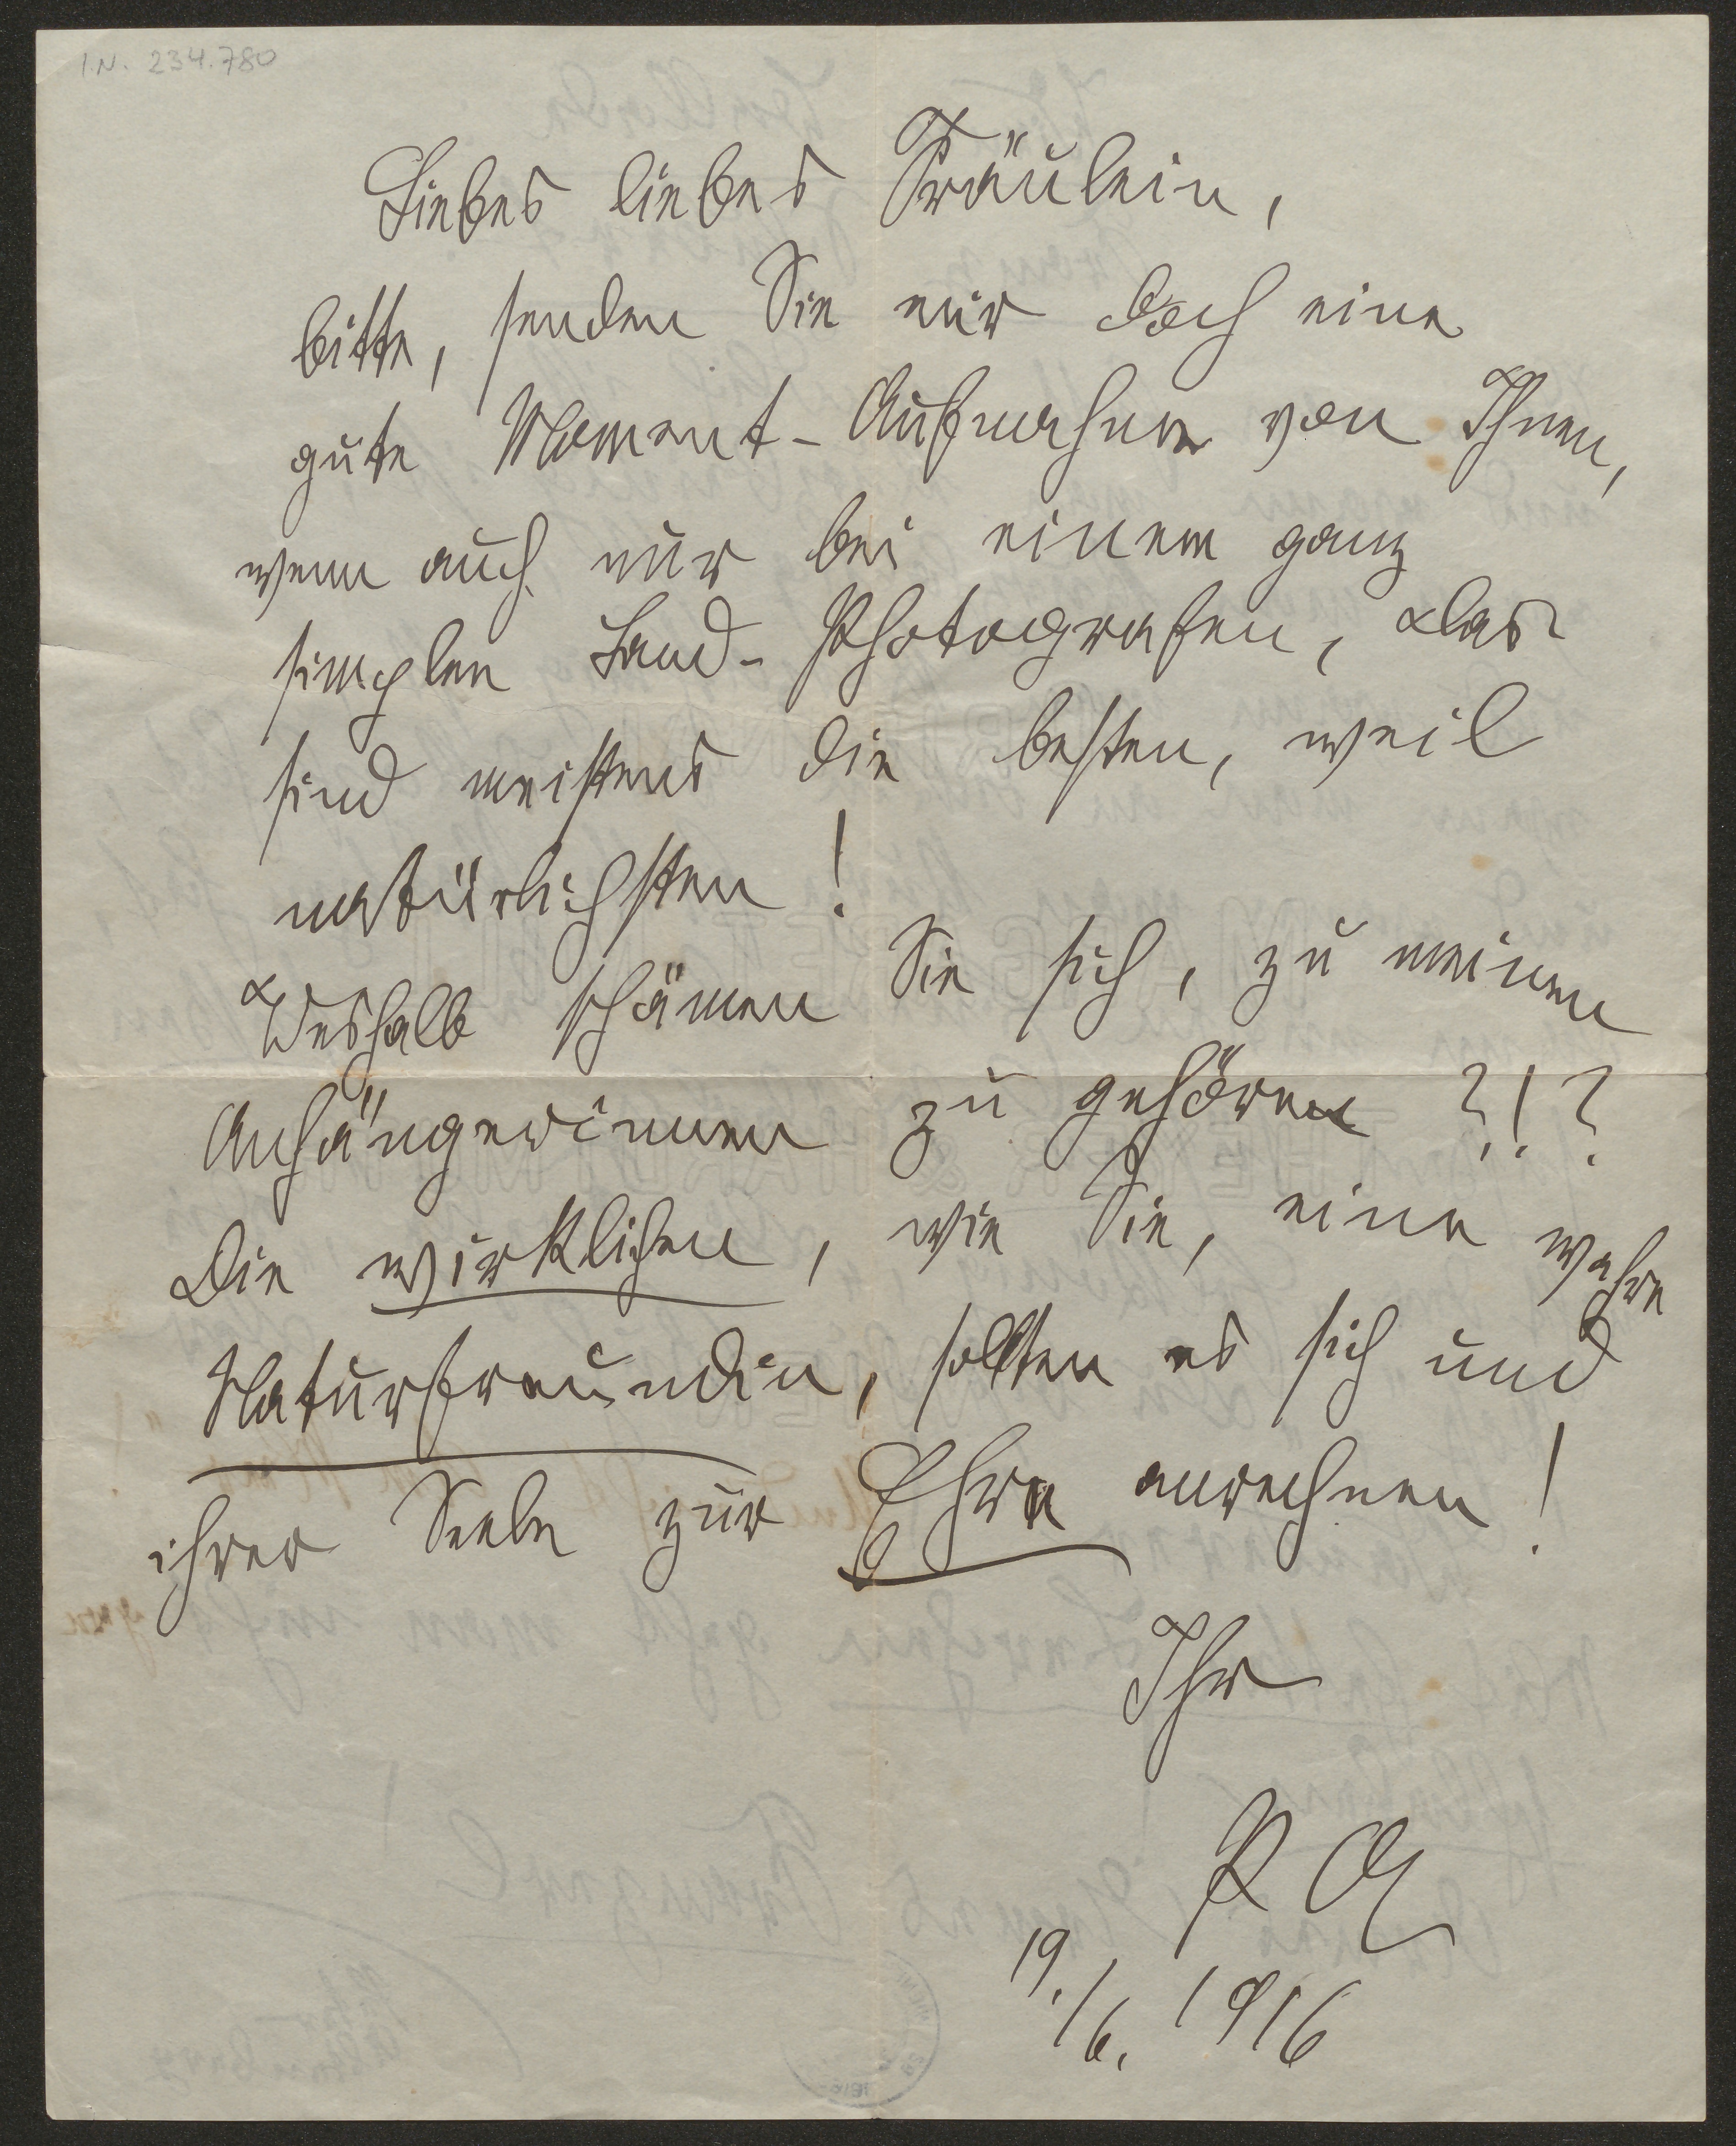 I.N. 234.780
Liebes liebes Fräulein,
bitte, senden Sie mir doch eine
gute Moment-Aufnahme von Ihnen,
wenn auch nur bei einem ganz
simplen Land-Photografen, das
sind meistens die besten, weil
natürlichsten!
Weshalb schämen Sie sich, zu meinen
Anhängerinnen zu gehören ?!?
Die wirklichen, wie Sie, eine wahre
Naturfreundin, sollten es sich und
ihrer Seele zur Ehre anrechnen!
Ihr
PA
19./6. 1916